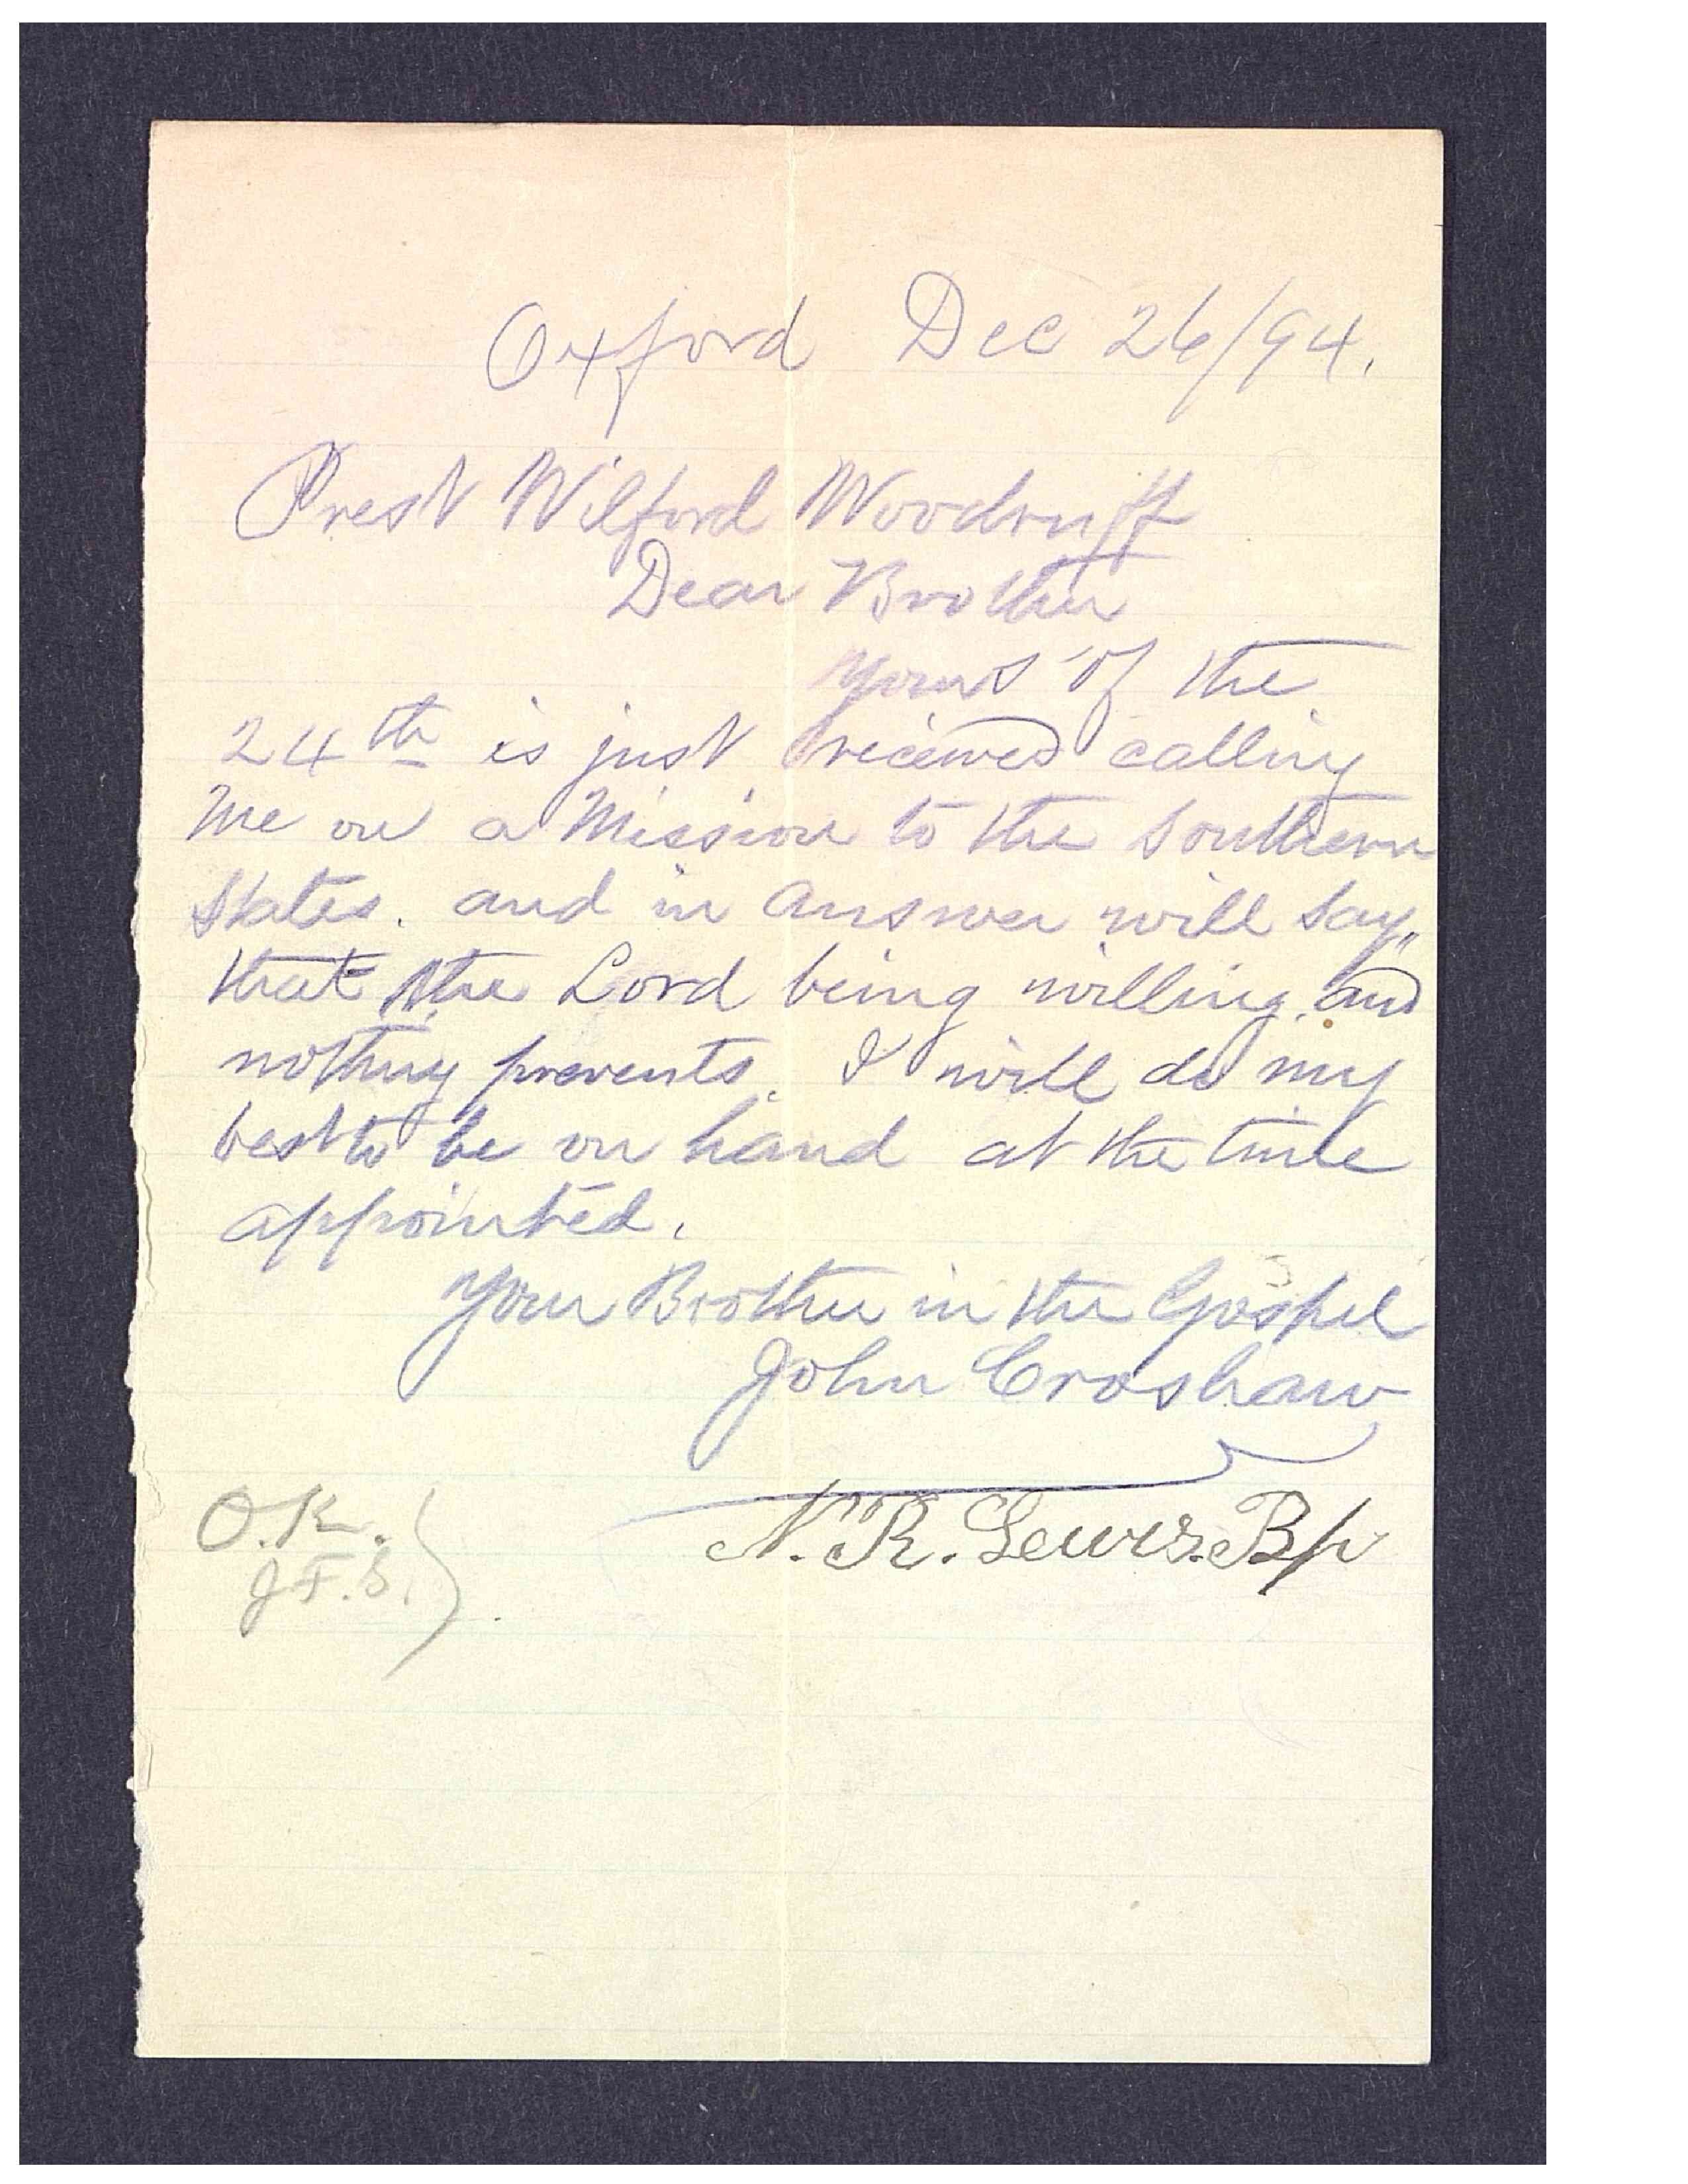 Oxford Dec 26/94.
Prest Wilford Woodruff
Dear Brother
Yours of the
24th is just recieved calling
Me on a Mission to the Southern
States. and in answer will say,
that the Lord being willing, and
nothing prevents. I will do my
best to be on hand at the time
appointed.
Your Brother in the Gospel
John Croshaw
N. R. Lewis. Bp
O.K.
J F. S.